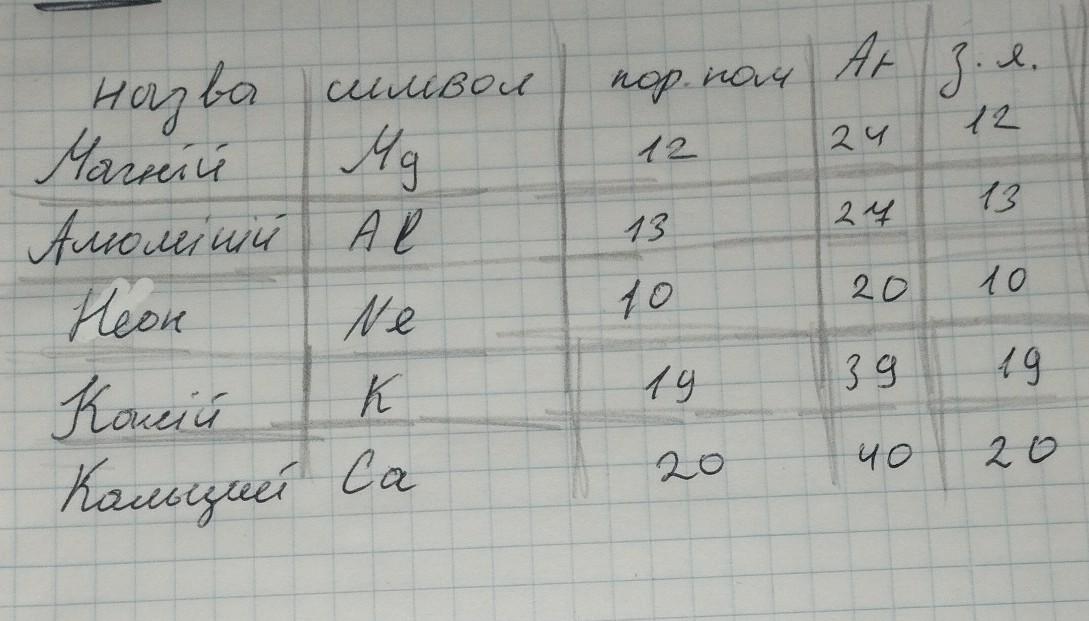 назва символ пор. ном Ar з. я.
Магній Mg 12 24 12
Алюміній Al 13 27 13
Неон Ne 10 20 10
Калій K 19 39 19
Кальцій Ca 20 40 20